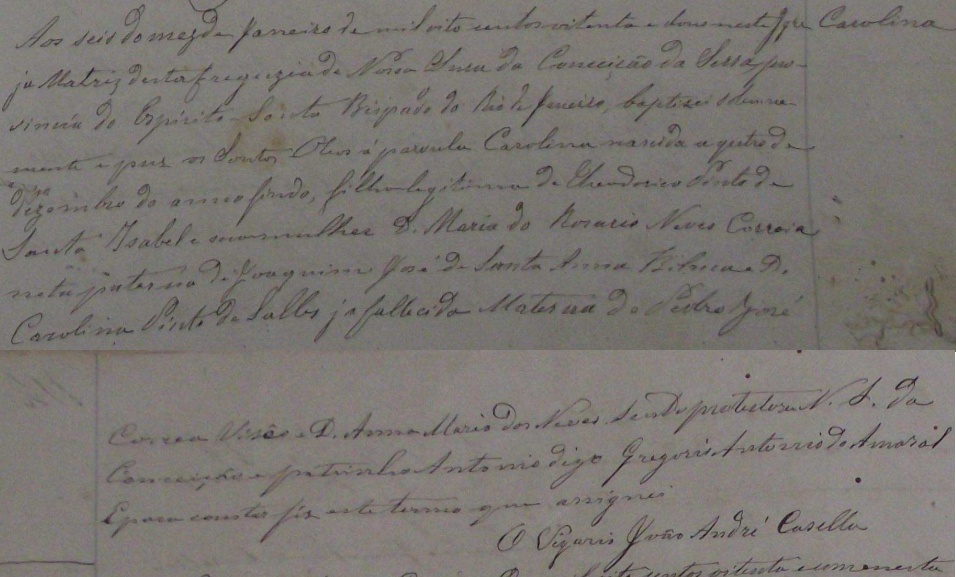 Aos seis do mez de Janeiro de mil oito centos oitenta e dous nesta Igre Carolina
ja Matriz desta freguezia de Nossa Snra da Conceição da Serra, pro-
vincia do Espirito-Santo Bispado do Rio de Janeiro, baptizei solemne-
mente e puz os Santos Oleos á parvula Carolina nascida a quatro de
Dezembro do anno findo, filha legitima de Theodorico Pinto de
Santa Izabel e sua mulher D. Maria do Rosario Neves Correia
neta paterna de Joaquim José de Santa Anna e D.
Carolina Pinto de Salles ja fallecida Materna de Pedro José
Correa e D. Anna Maria das Neves sendo protectora N. S. da
Conceição e padrinho Antonio digo Gregorio Antonio do Amaral
E para constar fiz este termo que assignei
O Vigario João André Casella
oito centos oitenta e um nesta